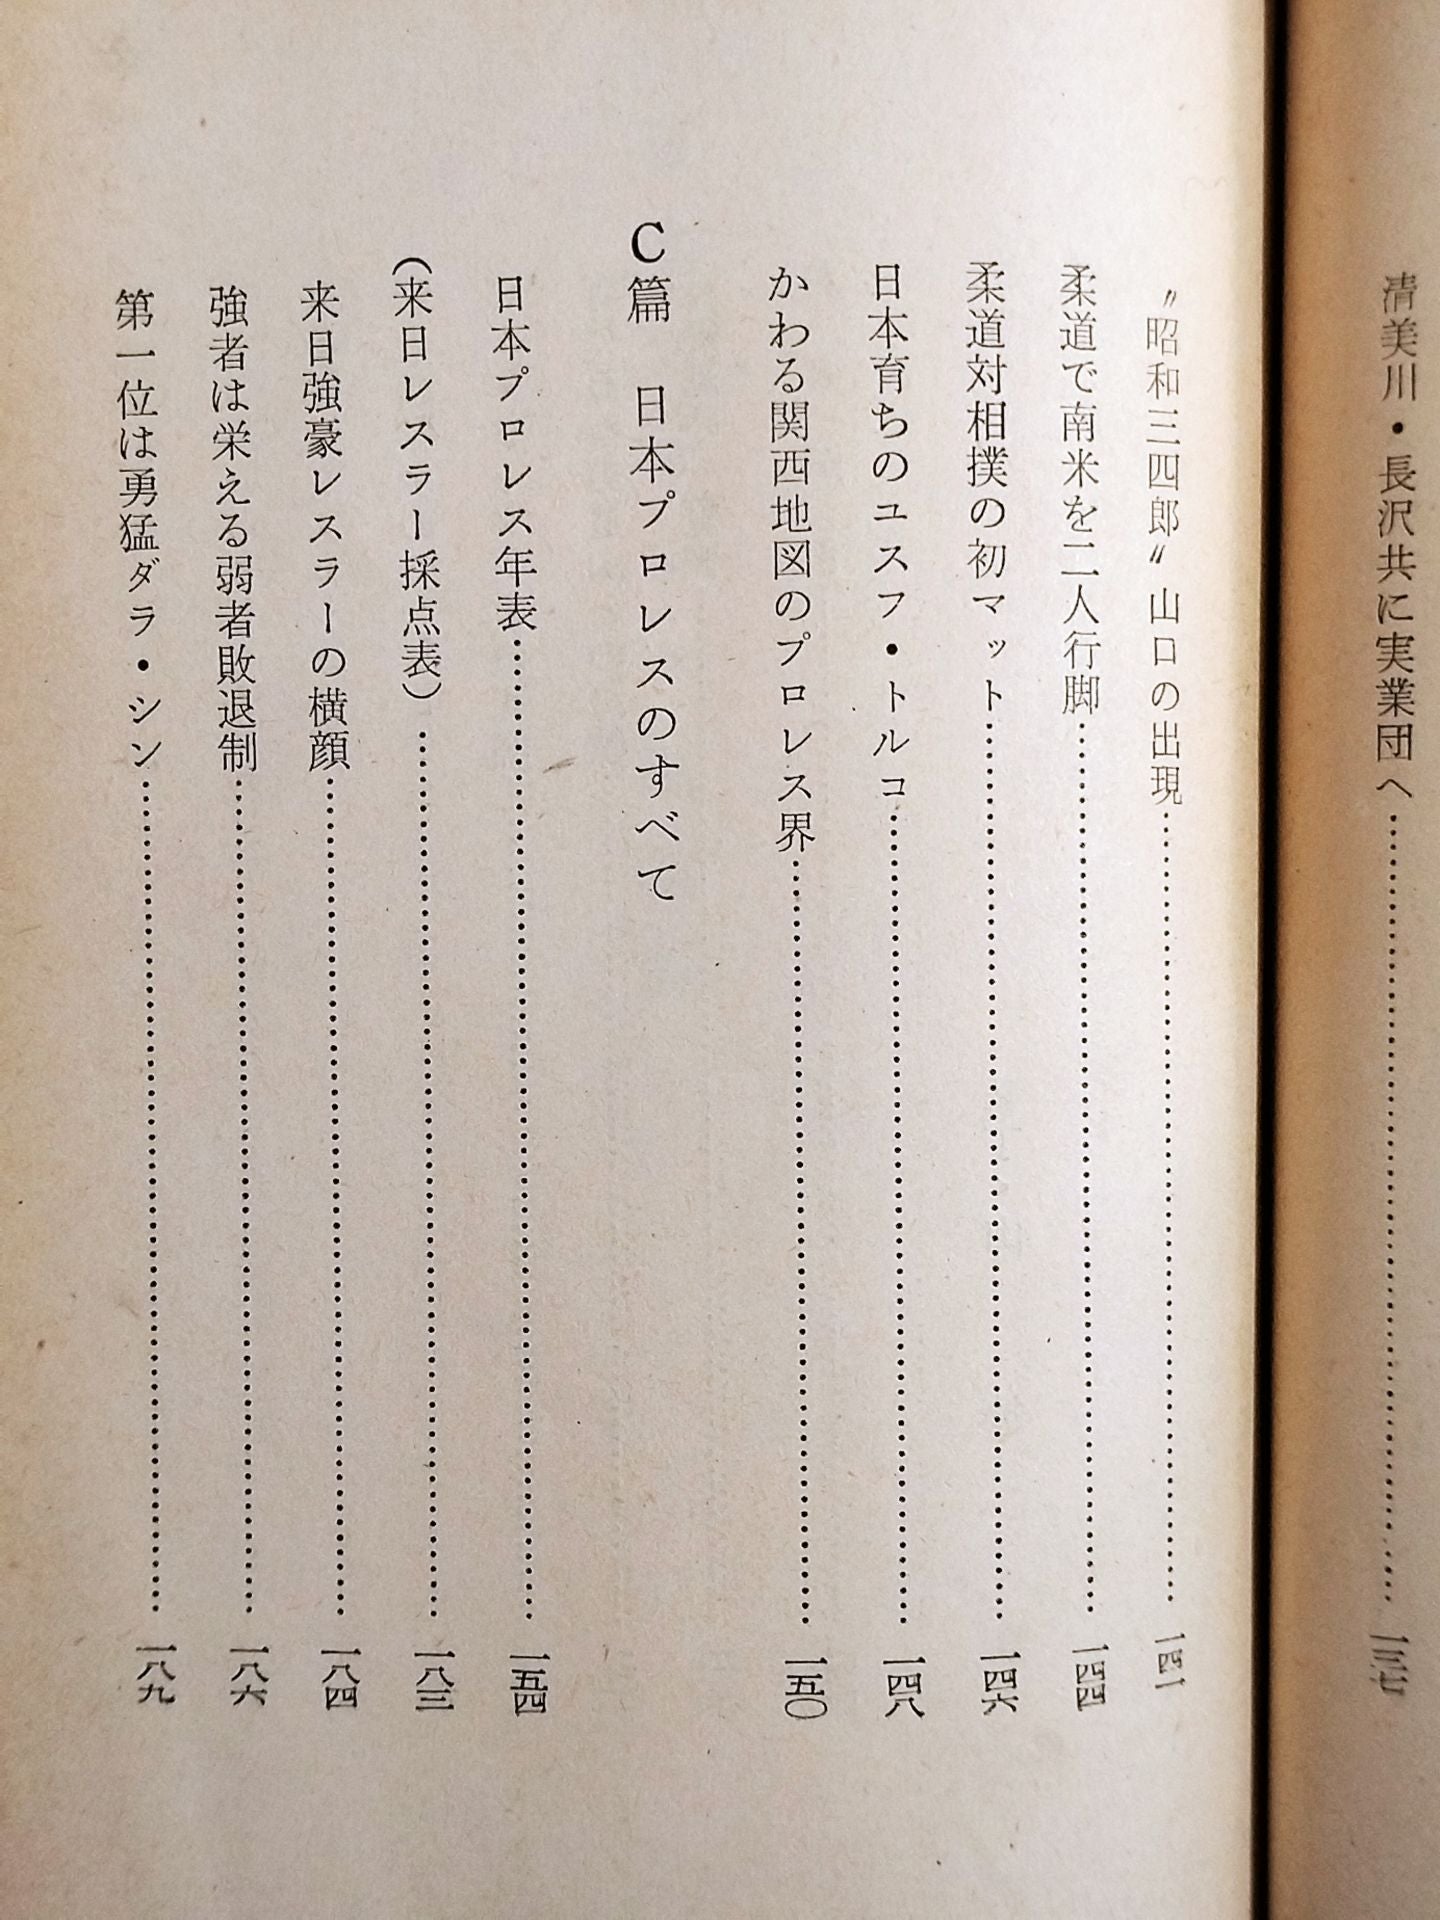 清美川・長沢共に実業団へ……一三七
〝昭和三四郎〟山口の出現……一四一
柔道で南米を二人行脚……一四四
柔道対相撲の初マット……一四六
日本育ちのユスフ・トルコ……一四八
かわる関西地図のプロレス界……一五〇
C篇 日本プロレスのすべて
日本プロレス年表……一五四
(来日レスラー採点表)……一八三
来日強豪レスラーの横顔……一八四
強者は栄える弱者敗退制……一八六
第一位は勇猛ダラ・シン……一八九